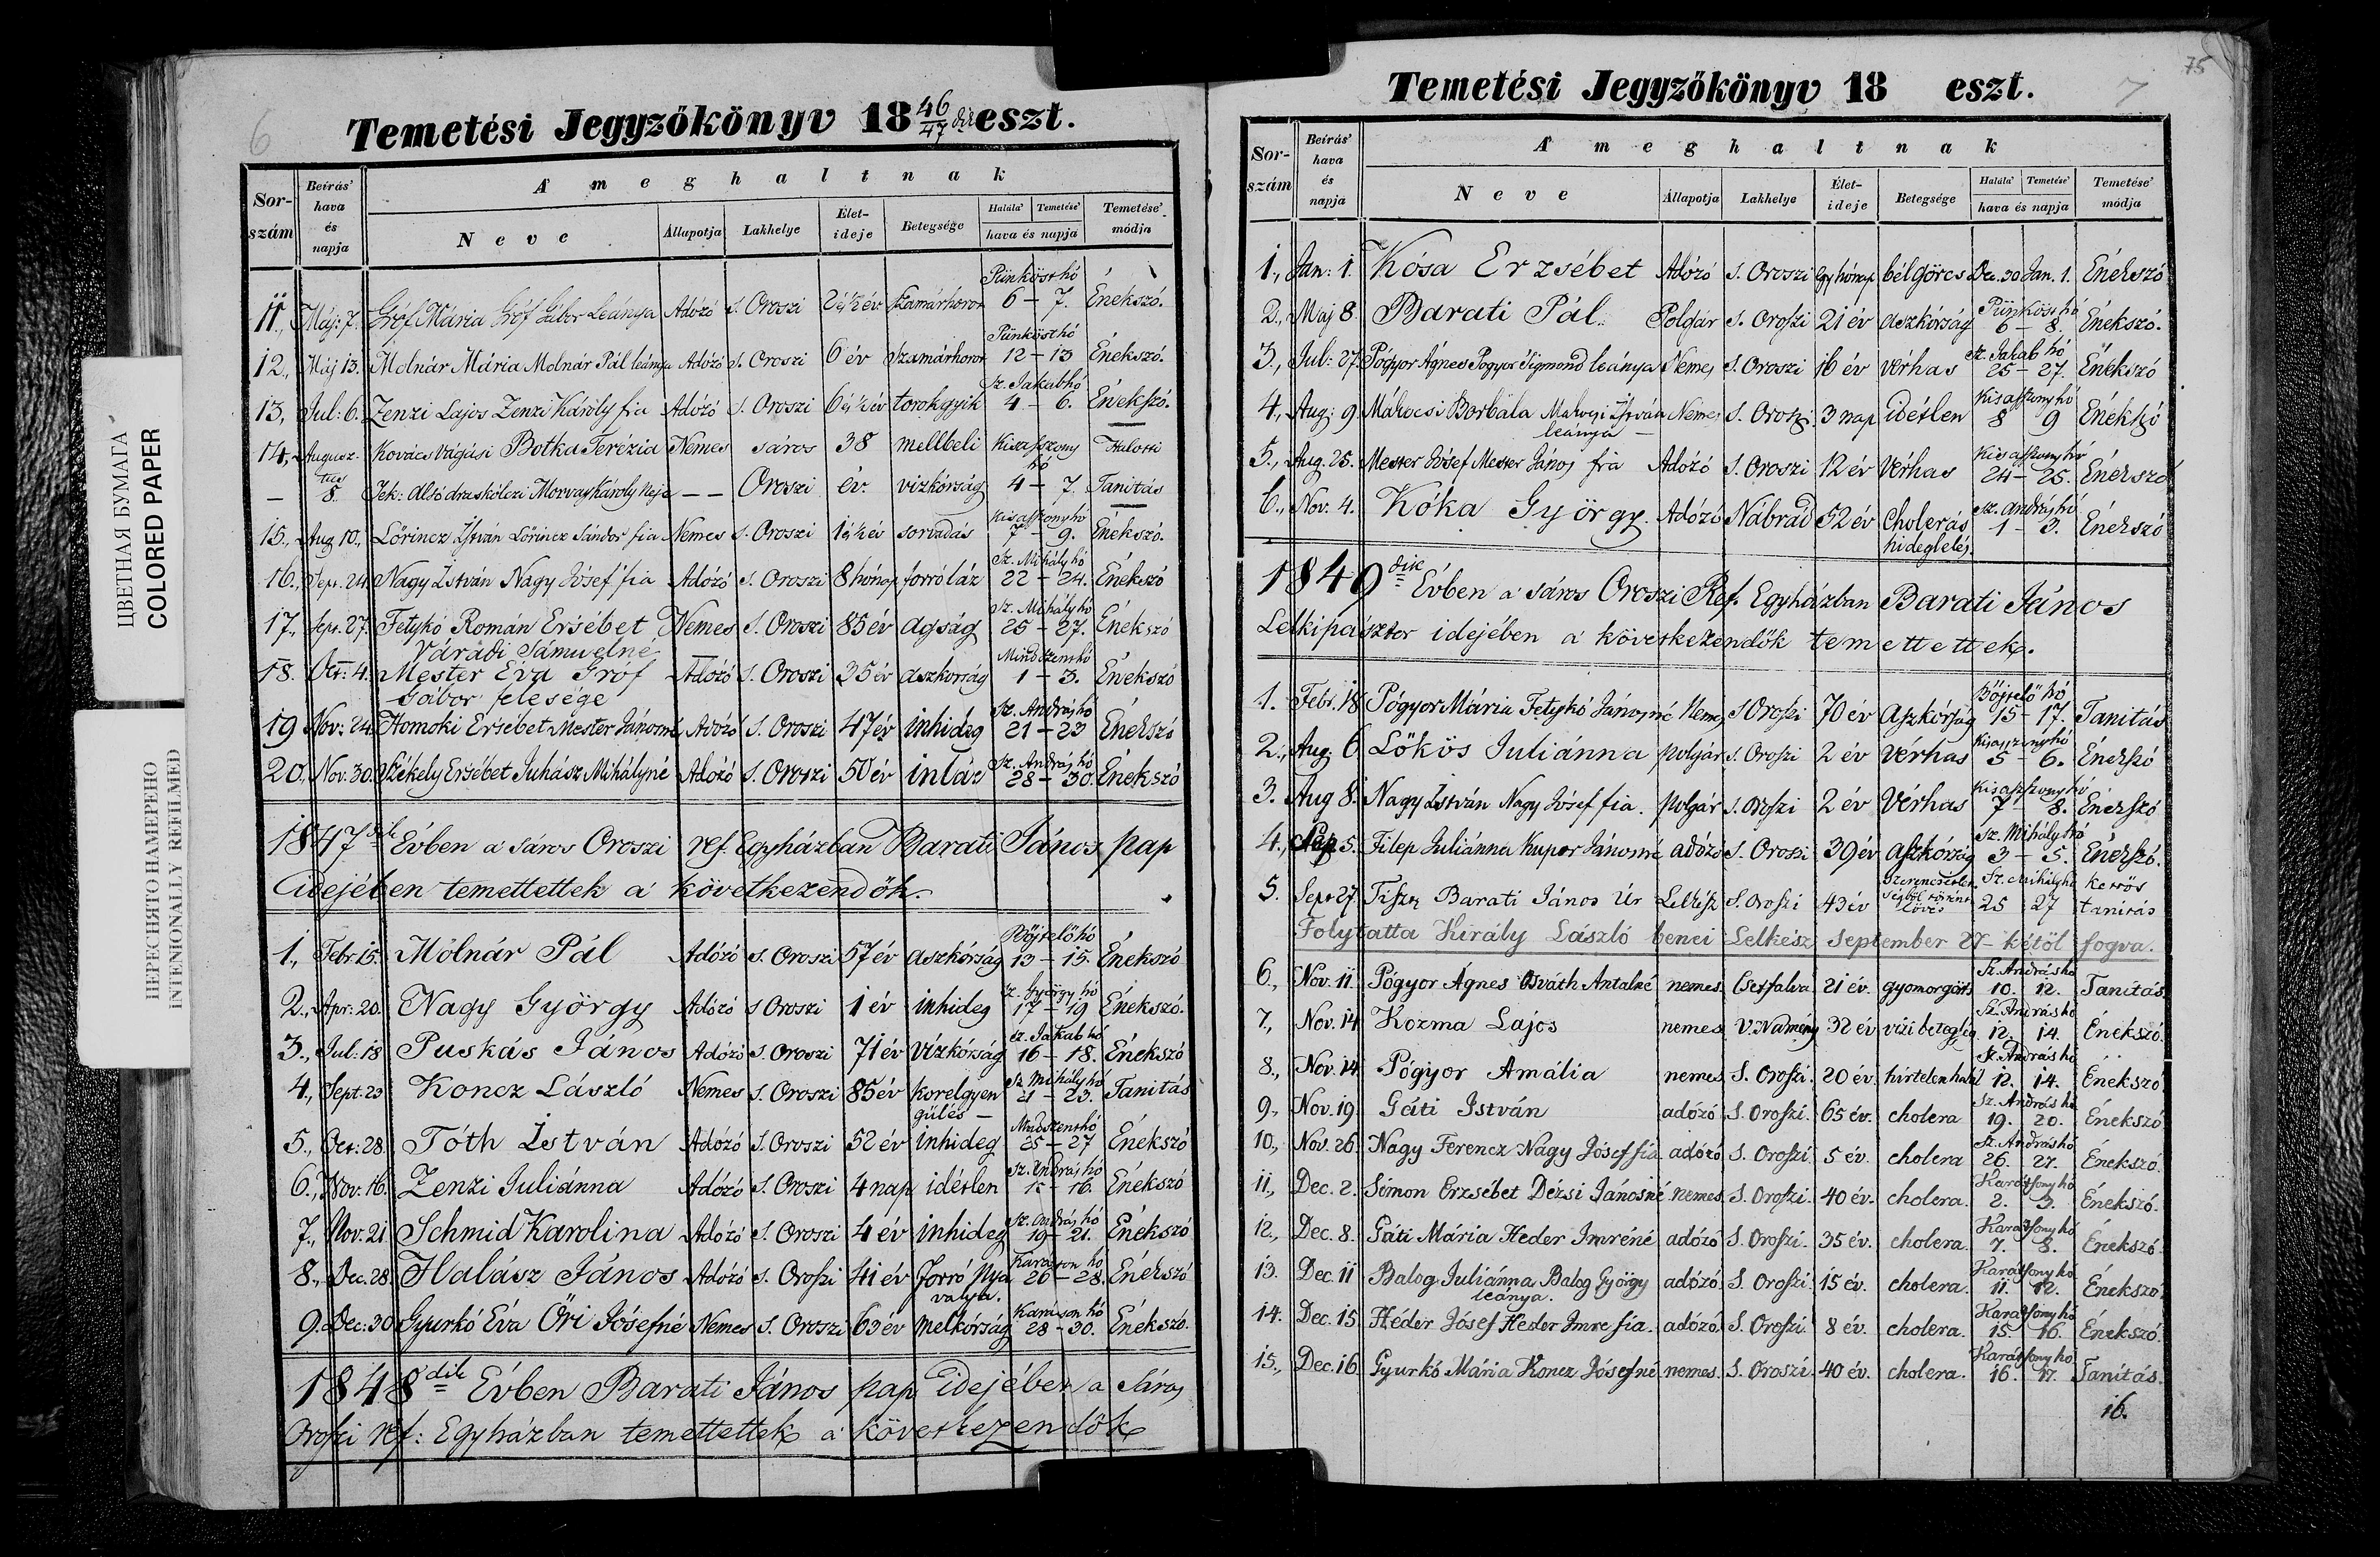 ЦВЕТНАЯ БУМАГА
COLORED PAPER
ПЕРЕСНЯТО НАМЕРЕНО
INTENIONALLY REFILMED
6
Temetési Jegyzőkönyv 18 46/47 dik eszt.
Sor-szám Beírás' hava és napja A' meghaltnak
Neve Állapotja Lakhelye Élet-ideje Betegsége Halála' Temetése' hava és napja Temetése' módja
11., Máj: 7. Gróf Mária Gróf Gábor Leánya Adózó S. Oroszi 2 és ½ év Szamárhorot Pünköst hó 6 – 7. Énekszó.
12., Máj 13. Molnár Mária Molnár Pál leánya Adózó S. Oroszi 6 év Szamárhorot Pünköst hó 12 – 13 Énekszó.
13, Jul: 6. Zenzi Lajos Zenzi Károly fia Adózó S. Oroszi 6 és ½ év torokgyik Sz. Jakab hó 4 – 6. Énekszó.
14, Augusz- Kovács vágási Botka Terézia Nemes sáros 38 mellbeli Kisasszony hó Halotti
– tus 8. Tek: Alsó draskóczi Morvay Károly Neje – – Oroszi év. vizkórság 4 – 7. Tanitás
15., Aug 10., Lőrincz István Lőrincz Sándor fia Nemes S. Oroszi 1 és ½ év sorvadás Kisasszony hó 7 – 9. Énekszó.
16., Sept. 24. Nagy István Nagy Jósef fia Adózó S. Oroszi 8 hónap forró láz Sz. Mihály hó 22 – 24. Énekszó
17., Sept. 27. Fetykó Román Ersébet Nemes S. Oroszi 85 év agság Sz. Mihály hó 25 – 27. Énekszó
Váradi Sámuelné
18. Oct: 4. Mester Éva Gróf Adózó S. Oroszi 35 év aszkorság Mindszent hó 1 – 3. Énekszó
Gábor felesége
19 Nov: 24. Homoki Ersébet Mester Jánosné Adózó S. Oroszi 47 év inhideg Sz. András hó 21 – 23 Énekszó
20., Nov. 30. Székely Ersébet Juhász Mihályné Adózó S. Oroszi 50 év inláz Sz. András hó 28 – 30. Énekszó
1847dik Évben a sáros Oroszi ref. Egyházban Barati János pap
idejében temettettek a' következendők.
1., Febr. 15. Molnár Pál Adózó S. Oroszi 57 év aszkórság Böjtelő hó 13 – 15. Énekszó
2., Apr: 20. Nagy György Adózó S Oroszi 1 év inhideg Sz. György hó 17 – 19 Énekszó.
3., Jul: 18 Puskás János Adózó S. Oroszi 71 év vízkórság Sz. Jakab hó 16 – 18. Énekszó
4., Sept. 23 Koncz László Nemes S. Oroszi 85 év korelgyen Sz. Mihály hó 21 – 23. Tanitás
gülés –
5., Oct: 28. Tóth István Adózó S. Oroszi 52 év inhideg Mindszent hó 25 – 27 Énekszó
6., Nov. 16. Zenzi Juliánna Adózó S. Oroszi 4 nap idétlen Sz. András hó 15 – 16. Énekszó
7., Nov. 21 Schmid Karolina Adózó S. Oroszi 4 év inhideg Sz. András hó 19 – 21. Énekszó
8., Dec. 28 Halász János Adózó S. Oroszi 41 év forró Nya Karátson hó 26 – 28. Énekszó
valya.
9. Dec: 30 Gyurkó Éva Őri Jósefné Nemes S. Oroszi 63 év melkórság Karátson hó 28 – 30. Énekszó.
1848dik Évben Barati János pap Idejében a Sáros
Oroszi réf: Egyházban temettettek a' következendők
75
7
Temetési Jegyzőkönyv 18 eszt.
Sor-szám Beírás' hava és napja A' meghaltnak
Neve Állapotja Lakhelye Élet-ideje Betegsége Halála' Temetése' hava és napja Temetése' módja
1., Jan: 1. Kósa Erzsébet Adózó S. Oroszi Egy hónap bélgörcs Dec. 30 Jan. 1. Énekszó
2., Maj 8. Barati Pál. Polgár S. Oroszi 21 év aszkórság Pünköst hó 6 – 8. Énekszó.
3., Jul: 27. Pógyor Ágnes Pogyor Sigmond leánya Nemes S. Oroszi 16 év vérhas Sz. Jakab hó 25 – 27. Énekszó
4., Aug: 9 Mákocsi Borbála Makocsi István Nemes S. Oroszi 3 nap idétlen Kisasszony hó 8 9 Énekszó
leánya –
5., Aug. 25. Mester Jósef Mester János fia Adózó S. Oroszi 12 év Vérhas Kisasszony hó 24 – 25. Énekszó
6., Nov. 4. Kóka György. Adózó Nábrád 52 év Cholerás Sz. András hó 1 – 3. Énekszó
hideglelés.
1849dik Évben a' sáros Oroszi Ref. Egyházban Barati János
Lelkipásztor idejében a' következendők temettettek.
1. Febr. 18 Pógyor Mária Fetykó Jánosné Nemes S Oroszi 70 év Aszkórság Böjtelő hó 15 – 17. Tanitás
2., Aug: 6 Lökös Juliánna polgár S. Oroszi 2 év vérhas Kisasszony hó 5 – 6. Énekszó
3. Aug 8. Nagy István Nagy Jósef fia. polgár S. Oroszi 2 év Vérhas Kisasszony hó 7 8. Énekszó
4., Sep 5. Filep Juliánna Kupor Jánosné adózó S. Oroszi 39 év aszkórság Sz. Mihály hó 3 – 5. Énekszó.
5. Sept 27. Tiszt. Barati János Úr Lelkész S. Oroszi 43 év Szerencsétlen Sz. Mihály hó kettős
ségből történt lövés 25 27 tanitás
Folytatta Király László benei Lelkész September 27-kétől fogva.
6., Nov. 11. Pógyor Ágnes Osváth Antalné nemes Csetfalva 21 év. gyomorgörts Sz. András hó 10. 12. Tanitás.
7., Nov. 14 Kozma Lajos nemes V. Namény 32 év vizi betegség Sz. András hó 12. 14. Énekszó.
8., Nov. 14 Pógyor Amália nemes S. Oroszi. 20 év. hirtelen halál Sz. András hó 12. 14. Énekszó
9., Nov. 19. Gáti István adózó S. Oroszi. 65 év. cholera Sz. András hó 19. 20. Énekszó
10., Nov. 26. Nagy Ferencz Nagy Jósef fia adózó S. Oroszi. 5 év. cholera Sz. András hó 26. 27. Énekszó.
11., Dec. 2. Simon Erzsébet Dézsi Jánosné nemes. S. Oroszi. 40 év. cholera. Karátsony hó 2. 3. Énekszó.
12., Dec. 8. Gáti Mária Héder Imréné adózó S. Oroszi. 35 év. cholera. Karátsony hó 7. 8. Énekszó.
13. Dec. 11 Balog Juliánna Balog György adózó S. Oroszi. 15 év. cholera. Karátsony hó 11. 12. Énekszó.
leánya.
14. Dec. 15 Héder Jósef Héder Imre fia. adózó. S. Oroszi. 8 év. cholera. Karátsony hó 15. 16. Énekszó.
15., Dec. 16 Gyurkó Mária Koncz Jósefné nemes. S. Oroszi. 40 év. cholera. Karátsony hó 16. 17. Tanitás.
16.